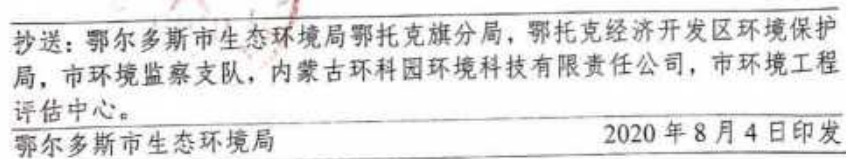 抄送：鄂尔多斯市生态环境局鄂托克旗分局，鄂托克经济开发区环境保护
局，市环境监察支队，内蒙古环科园环境科技有限责任公司，市环境工程
评估中心。
鄂尔多斯市生态环境局 2020年8月4日印发